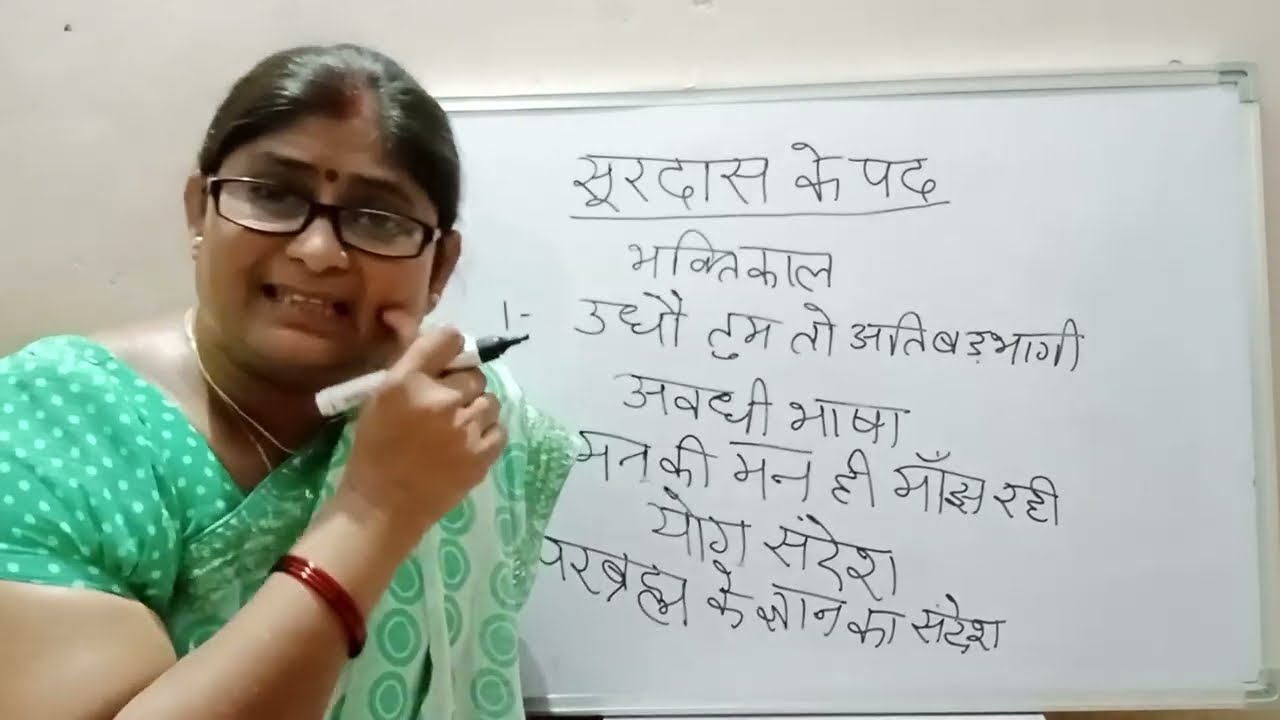 सूरदास के पद
भक्तिकाल
1- उधौ तुम तो अतिबड़भागी
अवधी भाषा
मन की मन ही माँझ रही
योग संदेश
परब्रह्म के ज्ञान का संदेश